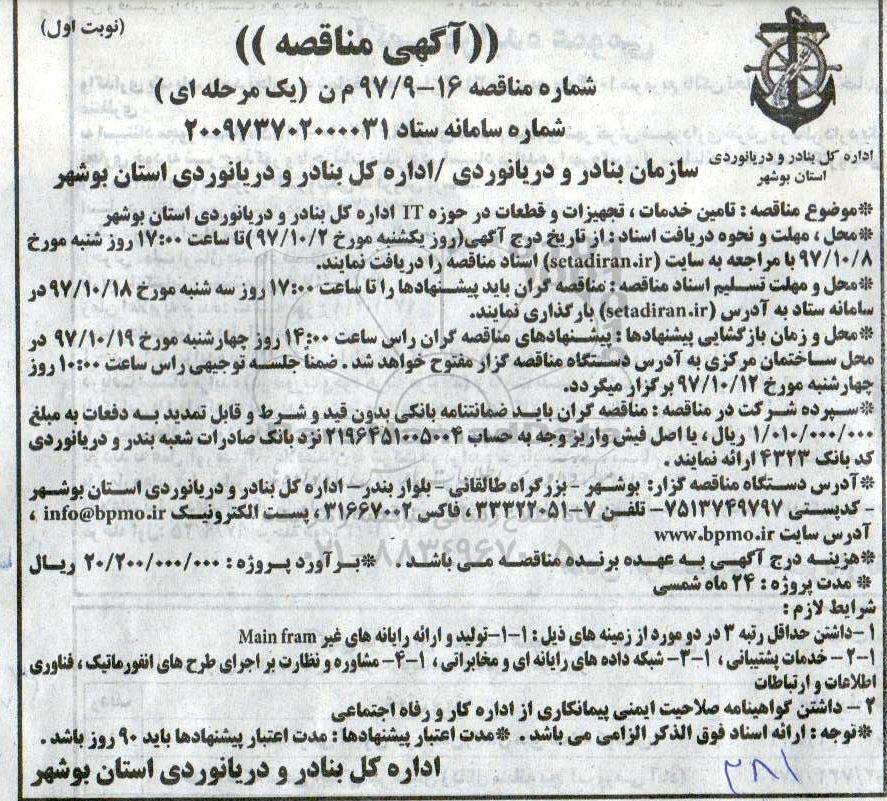 (نوبت اول)
((آگهی مناقصه))
شماره مناقصه ۱۶-۹۷/۹ م ن (یک مرحله ای)
شماره سامانه ستاد ۲۰۰۹۷۳۷۰۲۰۰۰۰۰۳۱
اداره کل بنادر و دریانوردی
استان بوشهر
سازمان بنادر و دریانوردی /اداره کل بنادر و دریانوردی استان بوشهر
*موضوع مناقصه : تامین خدمات ، تجهیزات و قطعات در حوزه IT اداره کل بنادر و دریانوردی استان بوشهر
*محل ، مهلت و نحوه دریافت اسناد : از تاریخ درج آگهی(روز یکشنبه مورخ ۹۷/۱۰/۲)تا ساعت ۱۷:۰۰ روز شنبه مورخ
۹۷/۱۰/۸ با مراجعه به سایت (setadiran.ir) اسناد مناقصه را دریافت نمایند.
*محل و مهلت تسلیم اسناد مناقصه : مناقصه گران باید پیشنهادها را تا ساعت ۱۷:۰۰ روز سه شنبه مورخ ۹۷/۱۰/۱۸ در
سامانه ستاد به آدرس (setadiran.ir) بارگذاری نمایند.
*محل و زمان بازگشایی پیشنهادها : پیشنهادهای مناقصه گران راس ساعت ۱۴:۰۰ روز چهارشنبه مورخ ۹۷/۱۰/۱۹ در
محل ساختمان مرکزی به آدرس دستگاه مناقصه گزار مفتوح خواهد شد . ضمنا جلسه توجیهی راس ساعت ۱۰:۰۰ روز
چهارشنبه مورخ ۹۷/۱۰/۱۲ برگزار میگردد.
*سپرده شرکت در مناقصه : مناقصه گران باید ضمانتنامه بانکی بدون قید و شرط و قابل تمدید به دفعات به مبلغ
۱/۰۱۰/۰۰۰/۰۰۰ ریال ، یا اصل فیش واریز وجه به حساب ۲۱۹۶۴۵۱۰۰۵۰۰۴ نزد بانک صادرات شعبه بندر و دریانوردی
کد بانک ۴۳۲۳ ارائه نمایند .
*آدرس دستگاه مناقصه گزار: بوشهر - بزرگراه طالقانی - بلوار بندر - اداره کل بنادر و دریانوردی استان بوشهر
- کدپستی ۷۵۱۳۷۴۹۷۹۷ - تلفن ۷-۳۳۳۲۲۰۵۱ ، فاکس ۳۱۶۶۷۰۰۲ ، پست الکترونیک info@bpmo.ir ،
آدرس سایت www.bpmo.ir
*هزینه درج آگهی به عهده برنده مناقصه می باشد . *برآورد پروژه : ۲۰/۲۰۰/۰۰۰/۰۰۰ ریال
* مدت پروژه : ۲۴ ماه شمسی
شرایط لازم :
۱-داشتن حداقل رتبه ۳ در دو مورد از زمینه های ذیل : ۱-۱-تولید و ارائه رایانه های غیر Main fram
۱-۲- خدمات پشتیبانی ، ۱-۳- شبکه داده های رایانه ای و مخابراتی ، ۱-۴- مشاوره و نظارت بر اجرای طرح های انفورماتیک ، فناوری
اطلاعات و ارتباطات
۲ - داشتن گواهینامه صلاحیت ایمنی پیمانکاری از اداره کار و رفاه اجتماعی
*توجه : ارائه اسناد فوق الذکر الزامی می باشد . *مدت اعتبار پیشنهادها : مدت اعتبار پیشنهادها باید ۹۰ روز باشد .
اداره کل بنادر و دریانوردی استان بوشهر
۲۸۱